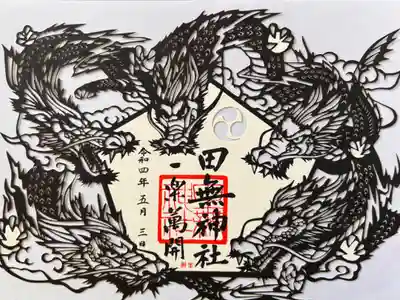 田無神社
一粒萬開
令和四年 五月 三日